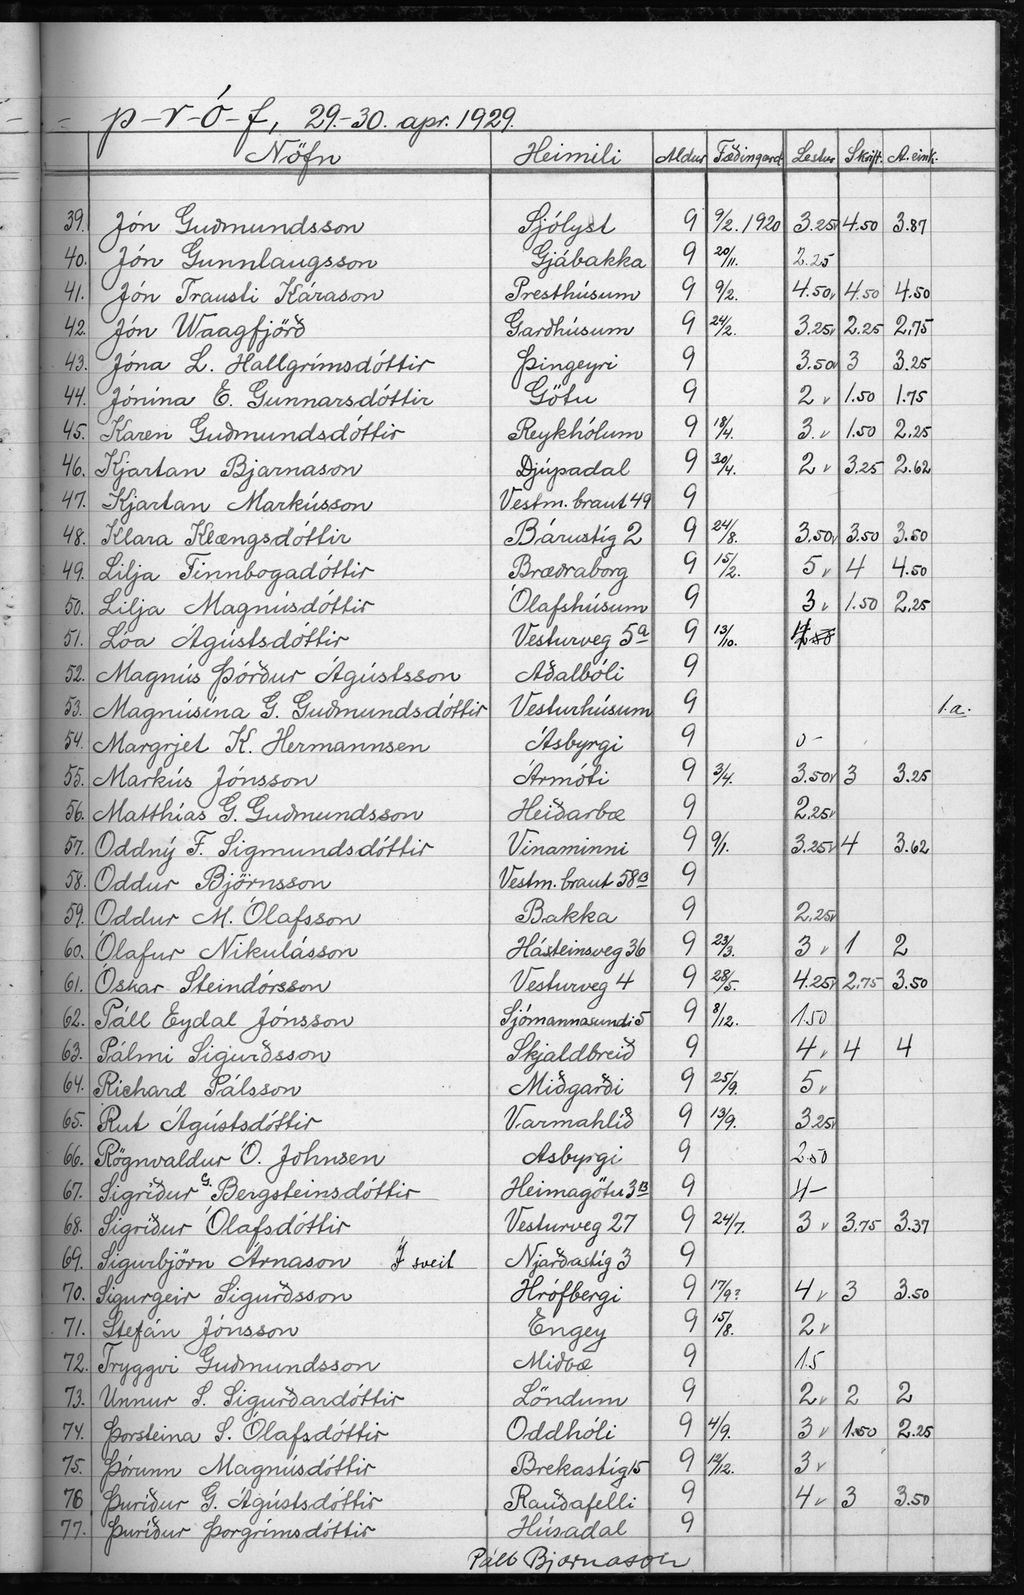 p-r-ó-f, 29.-30. apr. 1929.
Nöfn Heimili Aldur Fæðingard. Lestur Skrift. A. eink.
39. Jón Guðmundsson Sjólyst 9 9/2. 1920 3.25v 4.50 3.87
40. Jón Gunnlaugsson Gjábakka 9 20/11. 2.25
41. Jón Trausti Kárason Presthúsum 9 9/2. 4.50v 4.50 4.50
42. Jón Waagfjörð Garðhúsum 9 24/2. 3.25v 2.25 2.75
43. Jóna L. Hallgrímsdóttir Þingeyri 9 3.50v 3 3.25
44. Jónína E. Gunnarsdóttir Götu 9 2 v 1.50 1.75
45. Karen Guðmundsdóttir Reykhólum 9 18/4. 3. v 1.50 2.25
46. Kjartan Bjarnason Djúpadal 9 30/4. 2 v 3.25 2.62
47. Kjartan Markússon Vestm. braut 49 9
48. Klara Klængsdóttir Bárustíg 2 9 24/8. 3.50v 3.50 3.50
49. Lilja Finnbogadóttir Bræðraborg 9 15/2. 5 v 4 4.50
50. Lilja Magnúsdóttir Ólafshúsum 9 3 v 1.50 2.25
51. Lóa Ágústsdóttir Vesturveg 5a 9 13/10.
52. Magnús Þórður Ágústsson Aðalbóli 9
53. Magnúsína G. Guðmundsdóttir Vesturhúsum 9 1.a.
54. Margrjet K. Hermannsen Ásbyrgi 9 0-
55. Markús Jónsson Ármóti 9 3/4. 3.50v 3 3.25
56. Matthías G. Guðmundsson Heiðarbæ 9 2.25v
57. Oddný F. Sigmundsdóttir Vinaminni 9 9/1. 3.25v 4 3.62
58. Oddur Björnsson Vestm. braut 58B 9
59. Oddur M. Ólafsson Bakka 9 2.25v
60. Ólafur Nikulásson Hásteinsveg 36 9 23/3. 3 v 1 2
61. Óskar Steindórsson Vesturveg 4 9 28/5. 4.25v 2.75 3.50
62. Páll Eydal Jónsson Sjómannasundi 5 9 8/12. 1.50
63. Pálmi Sigurðsson Skjaldbreið 9 4 v 4 4
64. Richard Pálsson Miðgarði 9 25/9. 5 v
65. Rut Ágústsdóttir Varmahlíð 9 13/9. 3.25v
66. Rögnvaldur Ó. Johnsen Ásbyrgi 9 2.50
67. Sigríður G. Bergsteinsdóttir Heimagötu 3B 9 4-
68. Sigríður Ólafsdóttir Vesturveg 27 9 24/7. 3 v 3.75 3.37
69. Sigurbjörn Árnason Í sveit Njarðastíg 3 9
70. Sigurgeir Sigurðsson Hrófbergi 9 17/9? 4 v 3 3.50
71. Stefán Jónsson Engey 9 15/8. 2 v
72. Tryggvi Guðmundsson Miðbæ 9 1.5
73. Unnur S. Sigurðardóttir Löndum 9 2 v 2 2
74. Þorsteina S. Ólafsdóttir Oddhóli 9 4/9. 3 v 1.50 2.25
75. Þórunn Magnúsdóttir Brekastíg 15 9 12/12. 3 v
76 Þuríður G. Ágústsdóttir Rauðafelli 9 4 v 3 3.50
77. Þuríður Þorgrímsdóttir Húsadal 9
Páll Bjarnason